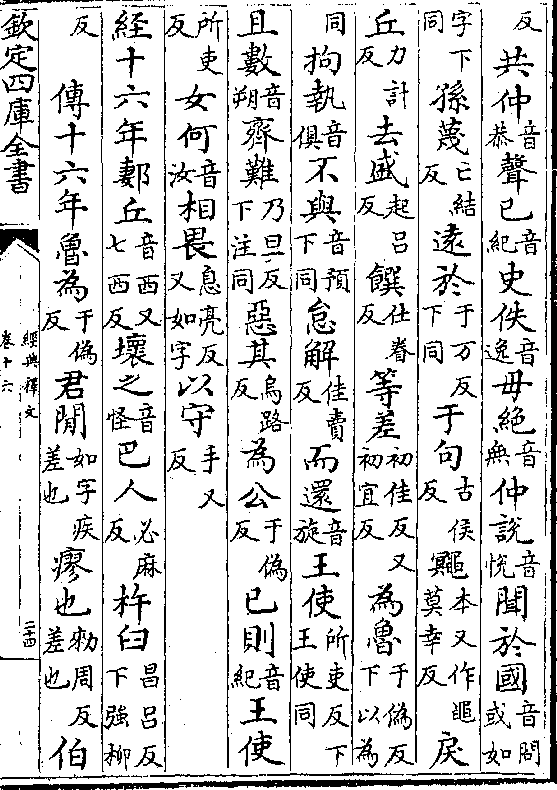 反共仲音恭聲已音紀史佚音逸毋絕音無仲說音悅聞於國音問或如
字下同孫蔑亡結反遠於于万反下同于句古侯反鼆本又作黽莫幸反戾
丘力計反去戚起呂反饌仕眷反等差初佳反又初宜反為魯于偽反下以為
同拘執音俱不與音預下同怠解佳賣反而還音旋王使所吏反下王使同
且數音朔齊難乃旦反下注同惡其烏路反為公于偽反已則音紀王使
所吏反女何音汝相畏息亮反又如字以守手又反
經十六年郪丘音西又七西反壞之音怪巴人必麻反杵臼昌呂反下強柳
反傳十六年魯為于偽反君閒如字疾差也瘳也勑周反差也伯
欽定四庫全書
經典釋文
卷十六
二十四